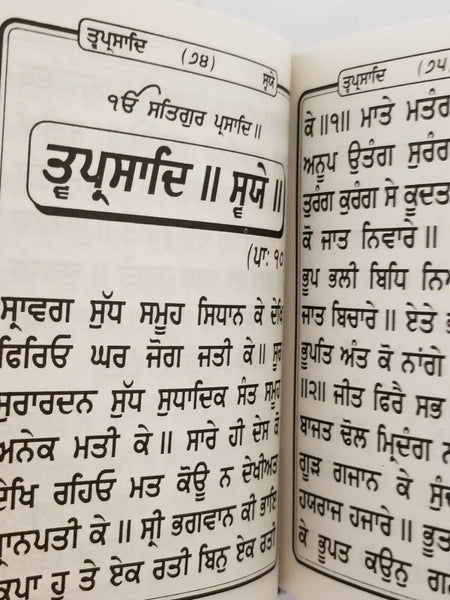 ਤ੍ਵਪ੍ਰਸਾਦਿ (੭੪) ਸ੍ਵਯੇ
ੴ ਸਤਿਗੁਰ ਪ੍ਰਸਾਦਿ॥
ਤ੍ਵਪ੍ਰਸਾਦਿ ॥ ਸ੍ਵਯੇ ॥
(ਪਾ: ੧੦
ਸ੍ਰਾਵਗ ਸੁੱਧ ਸਮੂਹ ਸਿਧਾਨ ਕੇ ਦੇਖਿ
ਫਿਰਿਓ ਘਰ ਜੋਗ ਜਤੀ ਕੇ॥ ਸੂਰ
ਸੁਰਾਰਦਨ ਸੁੱਧ ਸੁਧਾਦਿਕ ਸੰਤ ਸਮੂਹ
ਅਨੇਕ ਮਤੀ ਕੇ॥ ਸਾਰੇ ਹੀ ਦੇਸ ਕੋ
ਦੇਖਿ ਰਹਿਓ ਮਤ ਕੋਊ ਨ ਦੇਖੀਅਤ
ਪ੍ਰਾਨਪਤੀ ਕੇ॥ ਸ੍ਰੀ ਭਗਵਾਨ ਕੀ ਭਾਇ
ਕ੍ਰਿਪਾ ਹੂ ਤੇ ਏਕ ਰਤੀ ਬਿਨੁ ਏਕ ਰਤੀ
ਤ੍ਵਪ੍ਰਸਾਦਿ (੭੫)
ਕੇ॥੧॥ ਮਾਤੇ ਮਤੰਗ
ਅਨੂਪ ਉਤੰਗ ਸੁਰੰਗ
ਤੁਰੰਗ ਕੁਰੰਗ ਸੇ ਕੂਦਤ
ਕੋ ਜਾਤ ਨਿਵਾਰੇ॥
ਭੂਪ ਭਲੀ ਬਿਧਿ ਨਿ
ਜਾਤ ਬਿਚਾਰੇ॥ ਏਤੇ ਭ
ਭੂਪਤਿ ਅੰਤ ਕੋ ਨਾਂਗੇ
॥੨॥ ਜੀਤ ਫਿਰੈ ਸਭ
ਬਾਜਤ ਢੋਲ ਮ੍ਰਿਦੰਗ ਨ
ਗੂੜ ਗਜਾਨ ਕੇ ਸੁੰਦ
ਹਯਰਾਜ ਹਜਾਰੇ॥ ਭੂਤ
ਕੇ ਭੂਪਤ ਕਉਨੁ ਗਨ